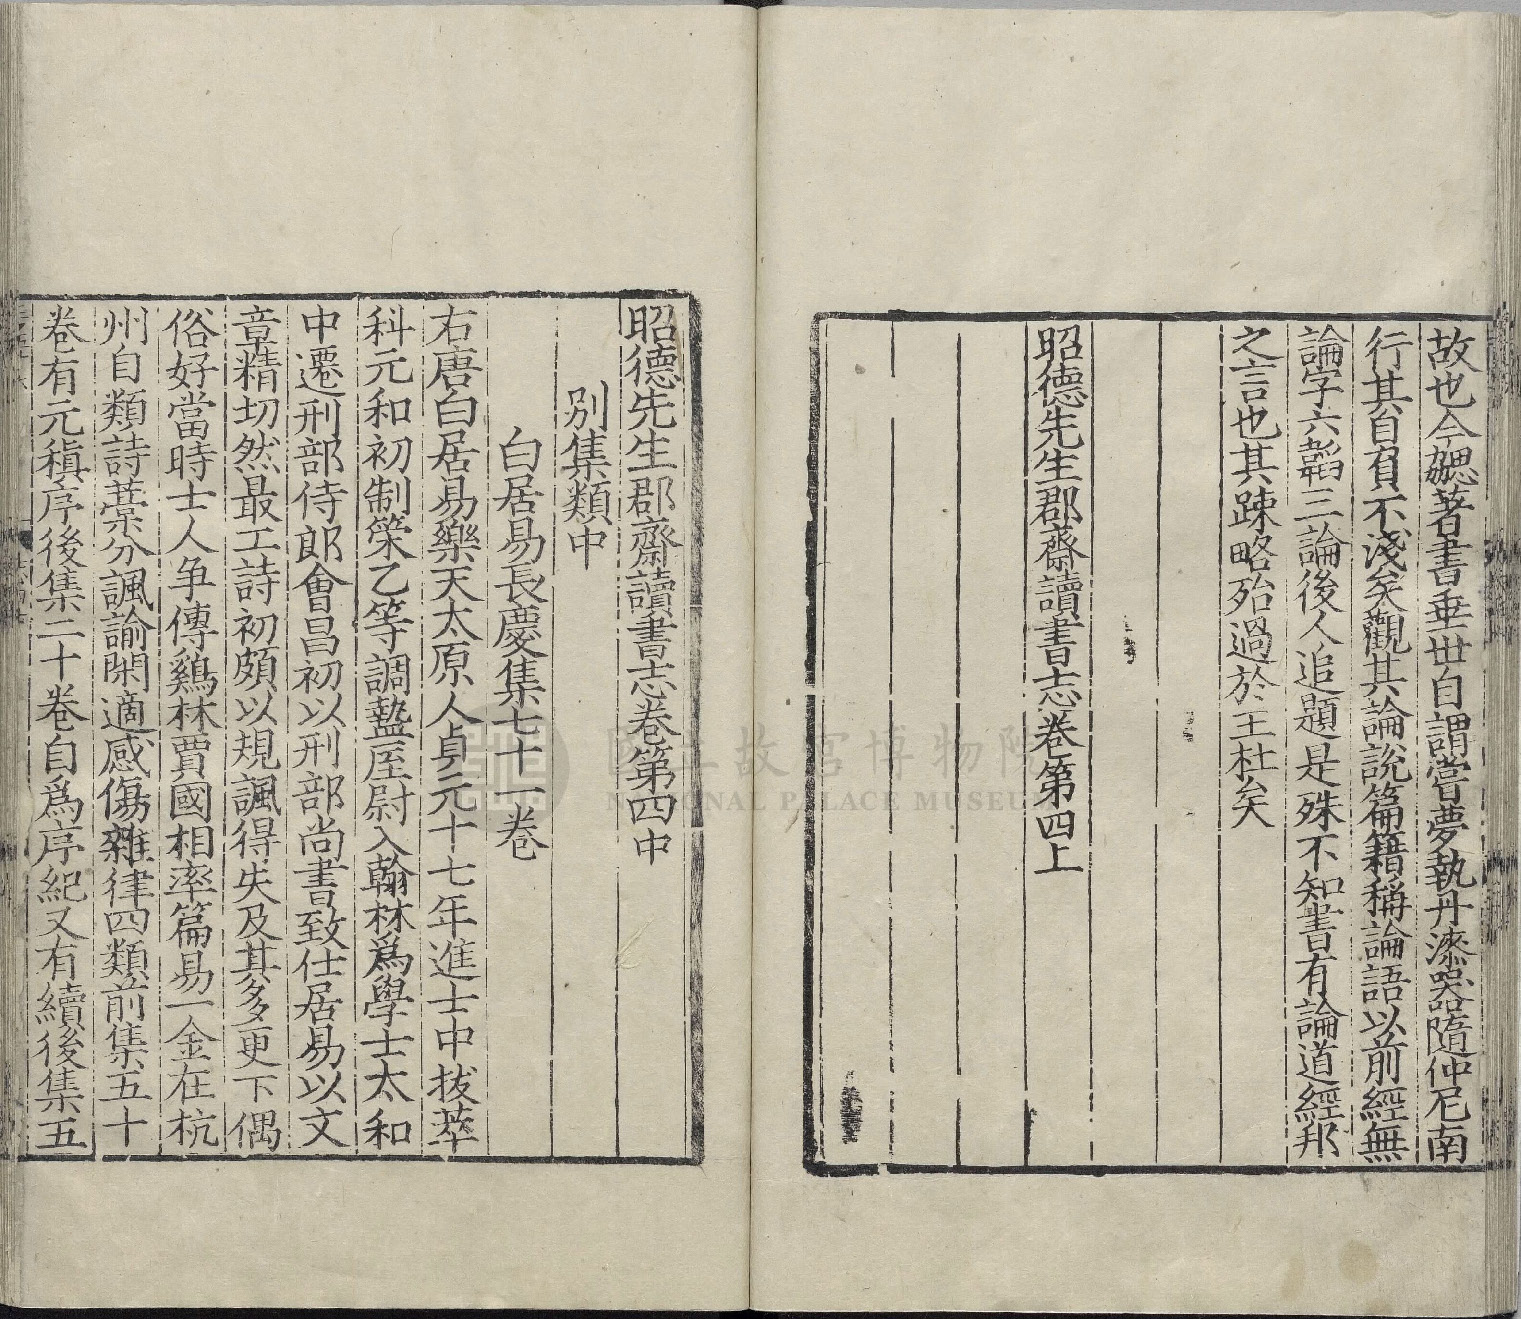 故也今勰著書垂世自謂嘗夢執丹漆器隨仲尼南
行其自負不淺矣觀其論說篇籍稱論語以前經無
論字六韜三論後人追題是殊不知書有論道經邦
之言也其踈略殆過於王杜矣
昭德先生郡齋讀書志卷第四上
昭德先生郡齋讀書志卷第四中
別集類中
白居易長慶集七十一卷
右唐白居易樂天太原人貞元十七年進士中拔萃
科元和初制策乙等調盩厔尉入翰林爲學士太和
中遷刑部侍郎會昌初以刑部尚書致仕居易以文
章精切然最工詩初頗以規諷得失及其多更下偶
俗好當時士人争傳鷄林賈國相率篇易一金在杭
州自類詩藁分諷諭閑適感傷雜律四類前集五十
卷有元稹序後集二十卷自爲序紀又有續後集五
國立故宮博物院
NATIONAL PALACE MUSEUM